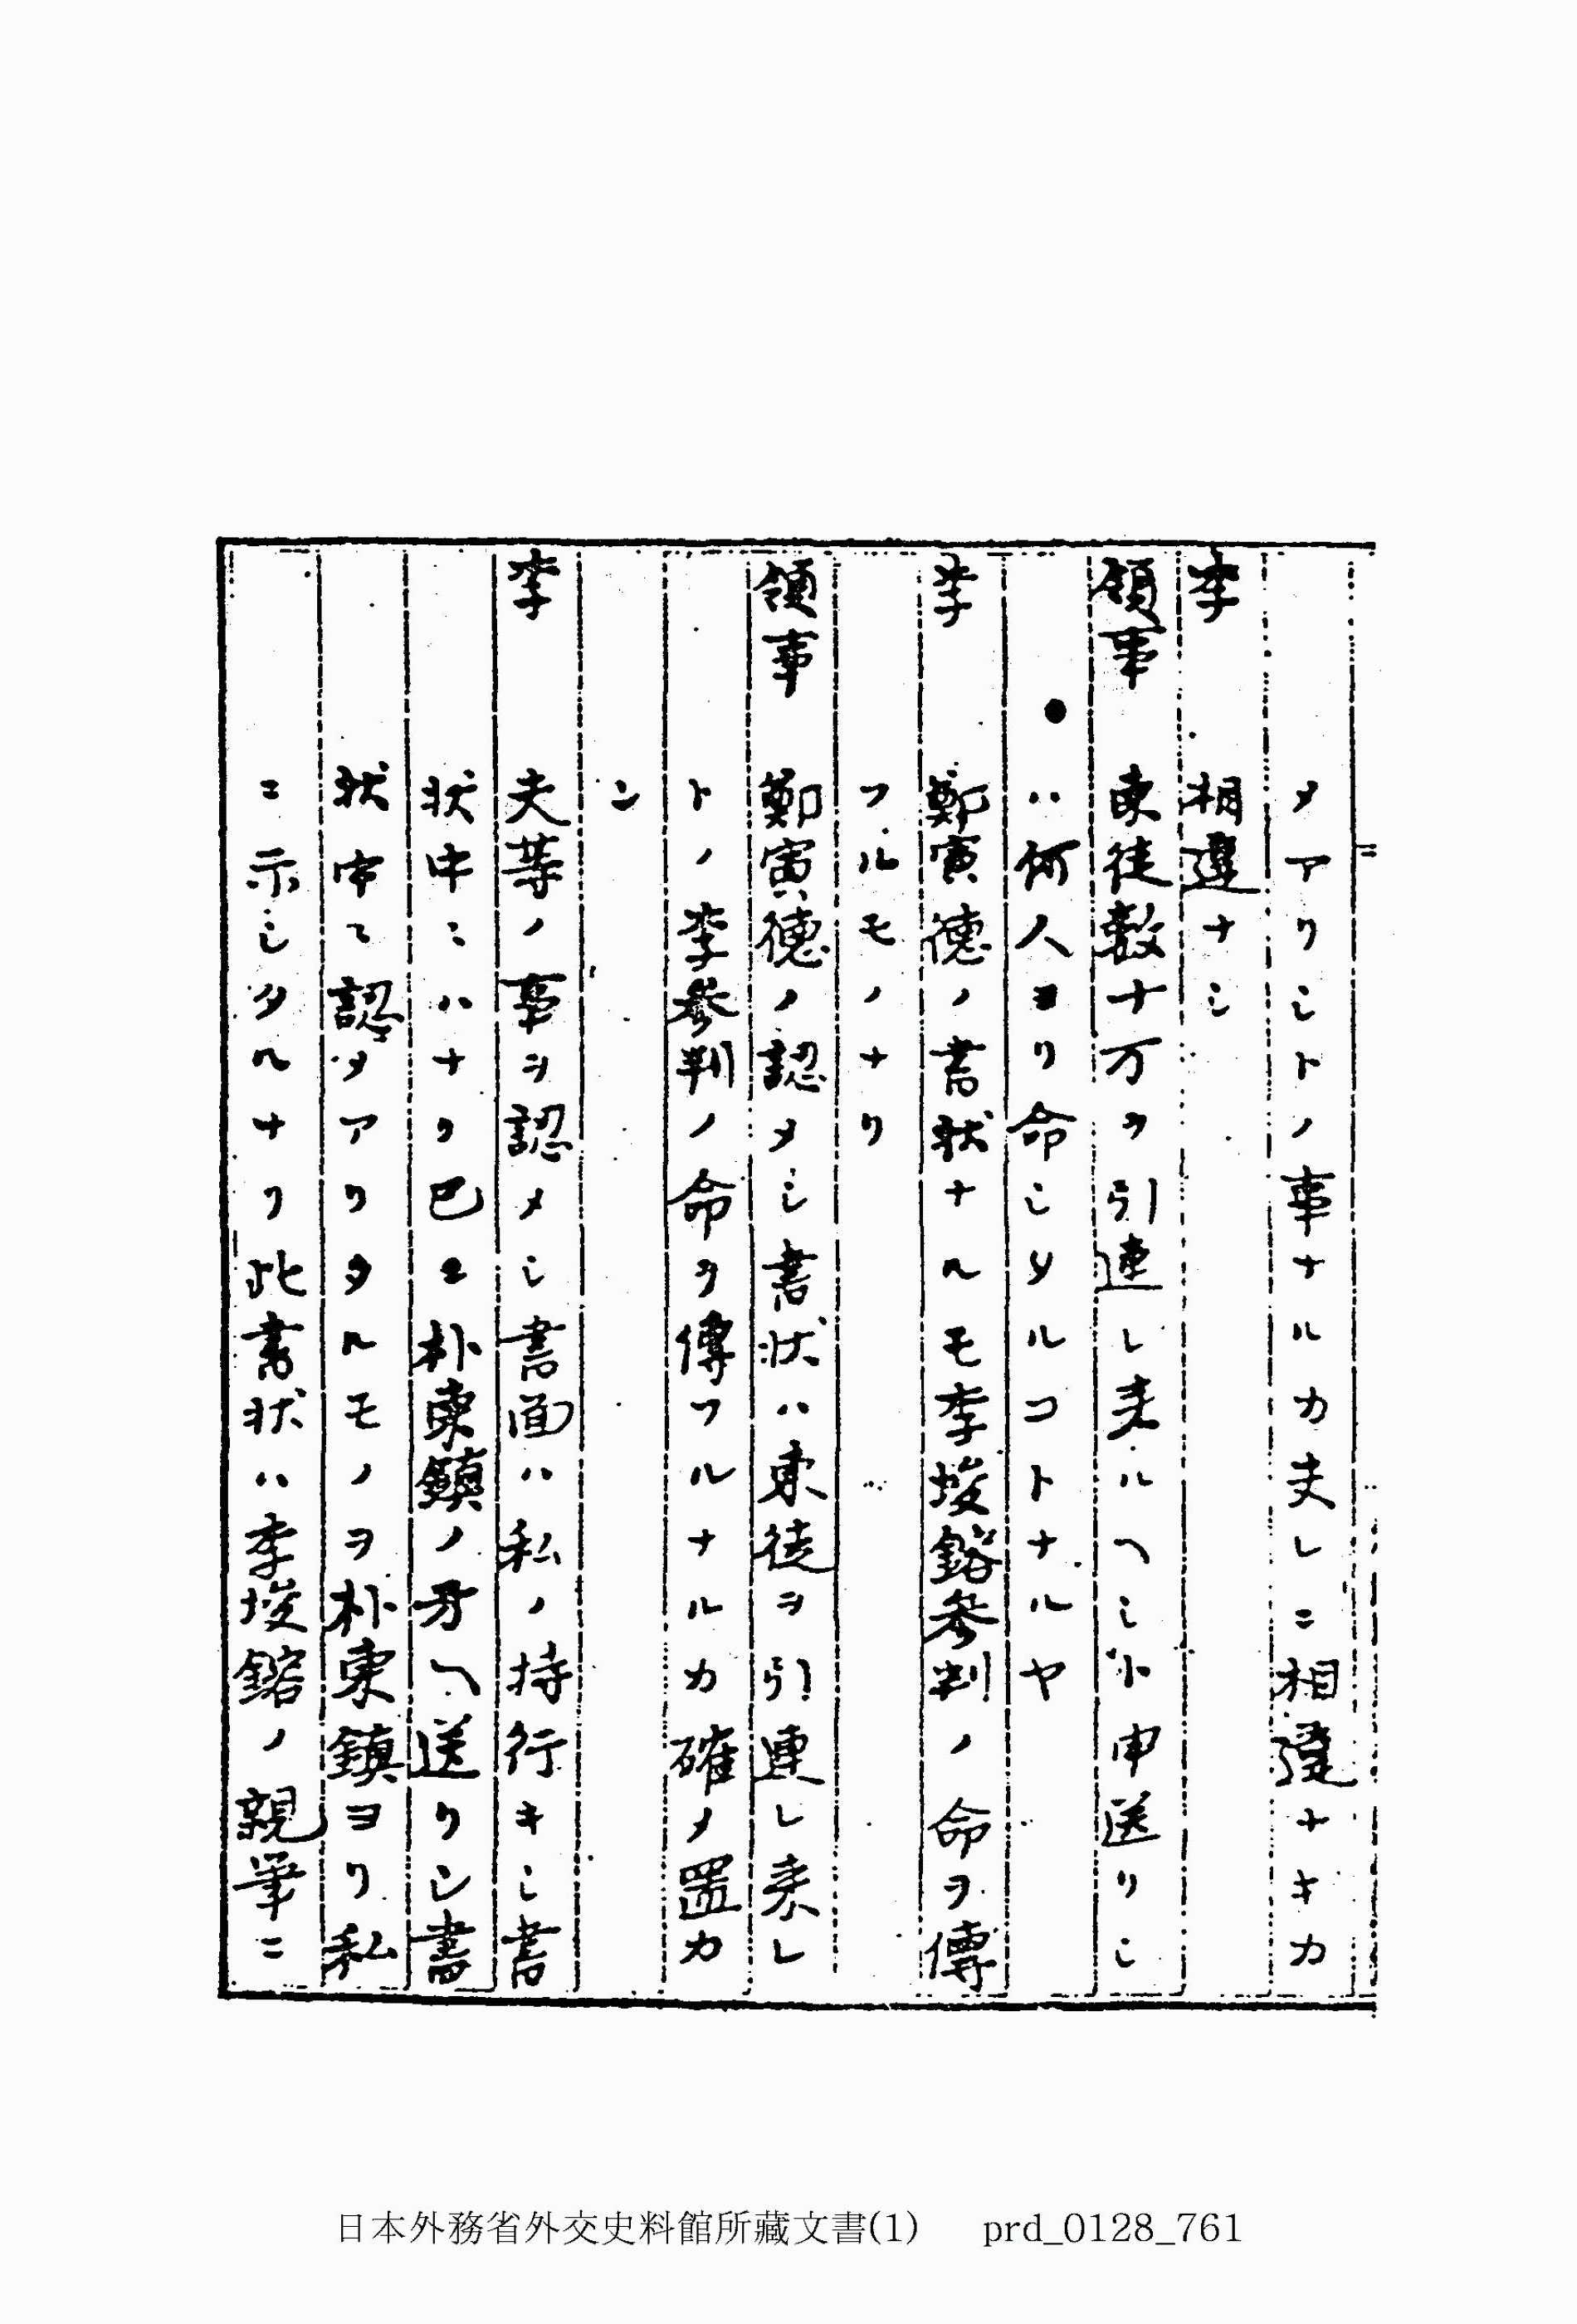 メアリシトノ事ナルカ夫レニ相違ナキカ
李 相違ナシ
領事 東徒数十万ヲ引連レ来ルヘシ申送リシ
ハ何人ヨリ命シタルコトナルヤ
李 鄭寅德ノ書状ナルモ李埈鎔参判ノ命ヲ傳
フルモノナリ
領事 鄭寅德ノ認メシ書状ハ東徒ヲ引連レ来レ
トノ李参判ノ命ヲ傳フルナルカ確メ置カ
ン
李 夫等ノ事ヲ認メシ書面ハ私ノ持行キシ書
状中ニハナク已ニ朴東鎮ノ方ヘ送リシ書
状中ニ認メアリタルモノヲ朴東鎮ヨリ私
ニ示シタルナリ此書状ハ李埈鎔ノ親筆ニ
日本外務省外交史料館所藏文書(1) prd_0128_761